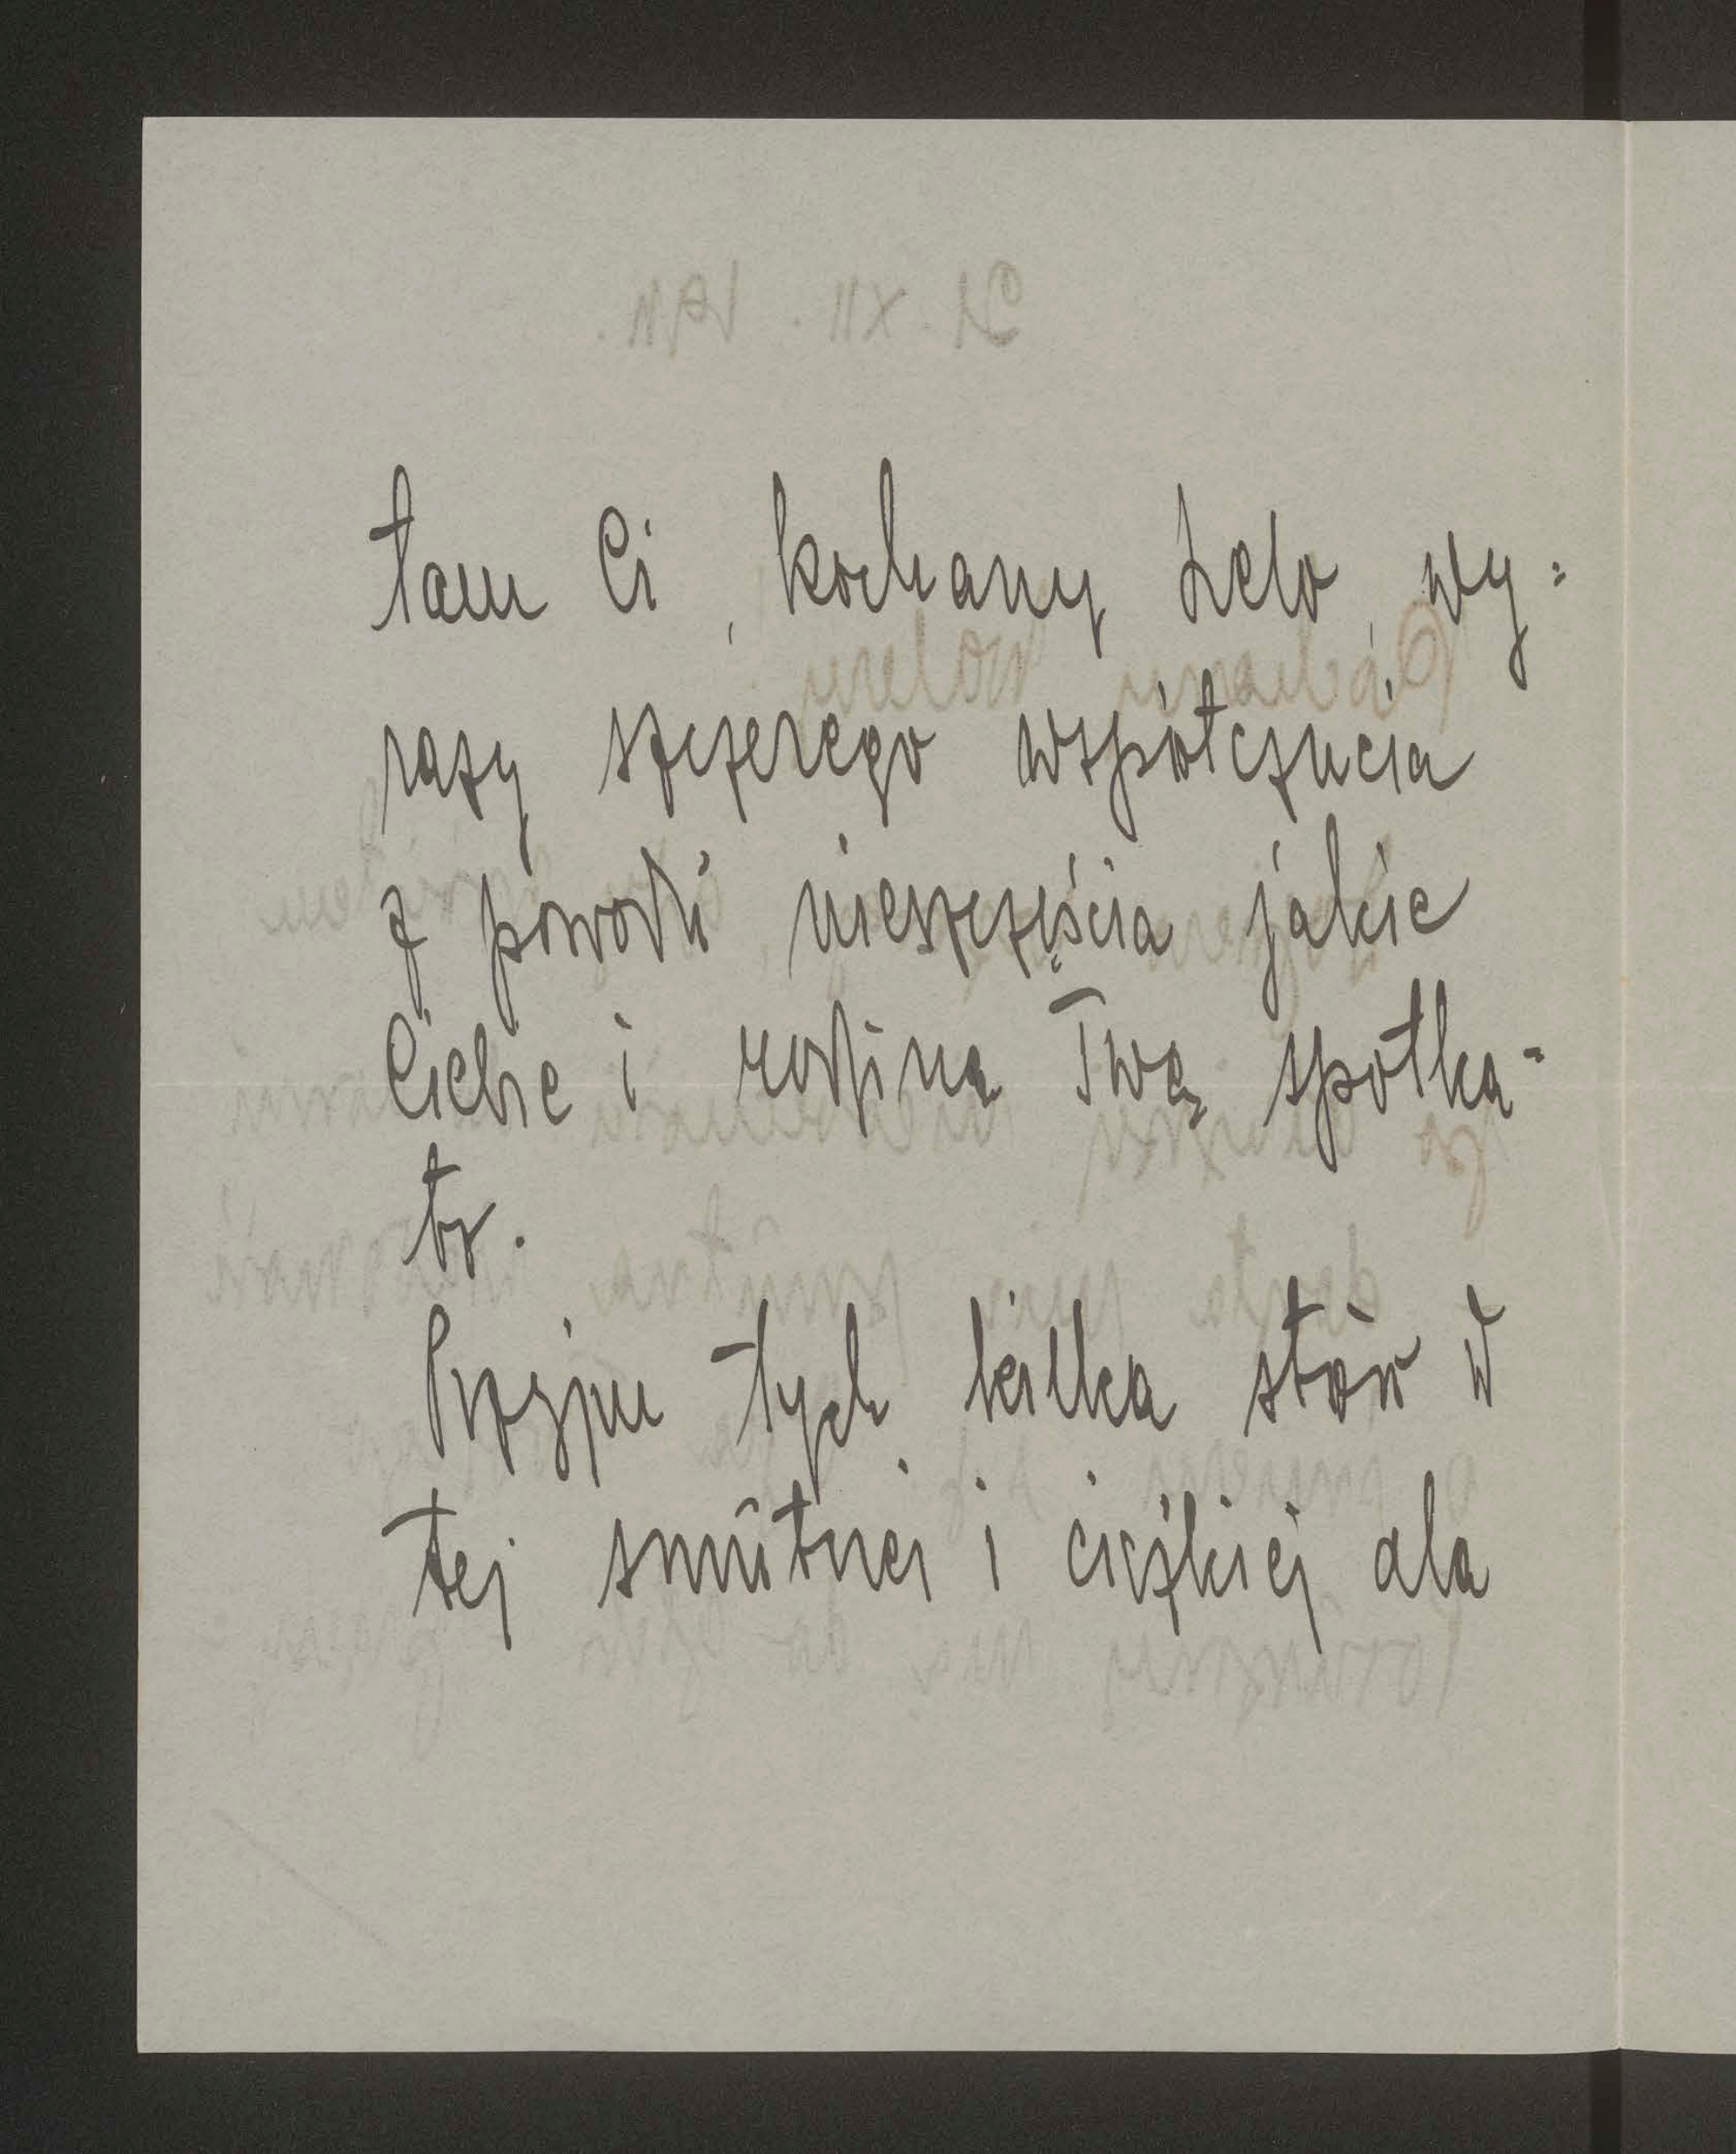 łam Ci, kochany Lelo, wy=
razy szczerego współczucia
z powodu nieszczęścia jakie
Ciebie i rodzinę Twą spotka-
ło.
Przyjm tych kilka słów w
tej smutnej i ciężkiej dla